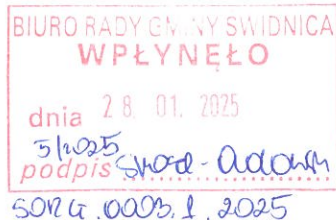 BIURO RADY GMINY ŚWIDNICA
WPŁYNĘŁO
dnia 28. 01. 2025
5/2025
podpis
SORG.0003.1.2025